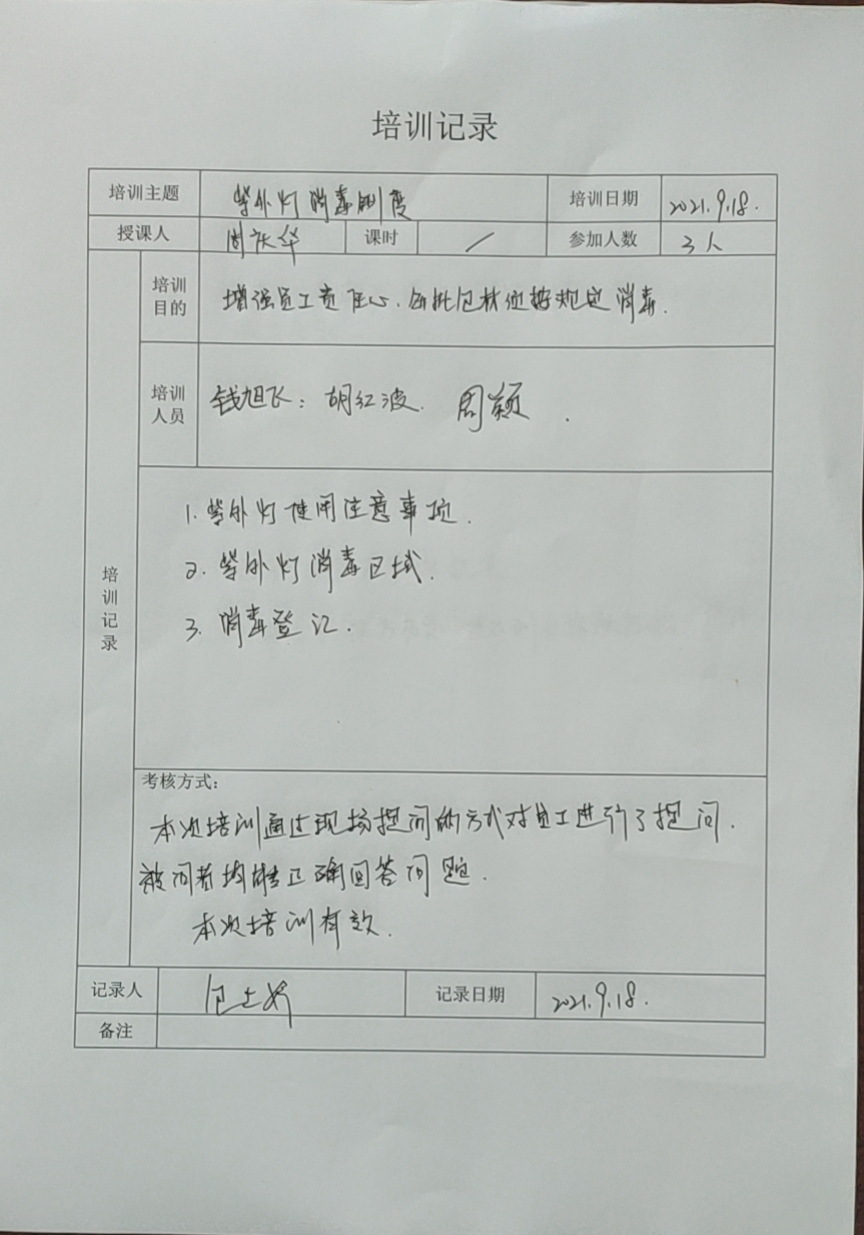 培训记录
培训主题 紫外灯消毒制度 培训日期 2021.9.18.
授课人 周庆华 课时 / 参加人数 3人
培训目的 增强员工责任心、每批包材应按规定消毒.
培训人员 钱旭飞: 胡红波. 周颖.
培训记录
1. 紫外灯使用注意事项.
2. 紫外灯消毒区域.
3. 消毒登记.
考核方式:
本次培训通过现场提问的方式对员工进行了提问.
被问者均能正确回答问题.
本次培训有效.
记录人 记录日期 2021.9.18.
备注